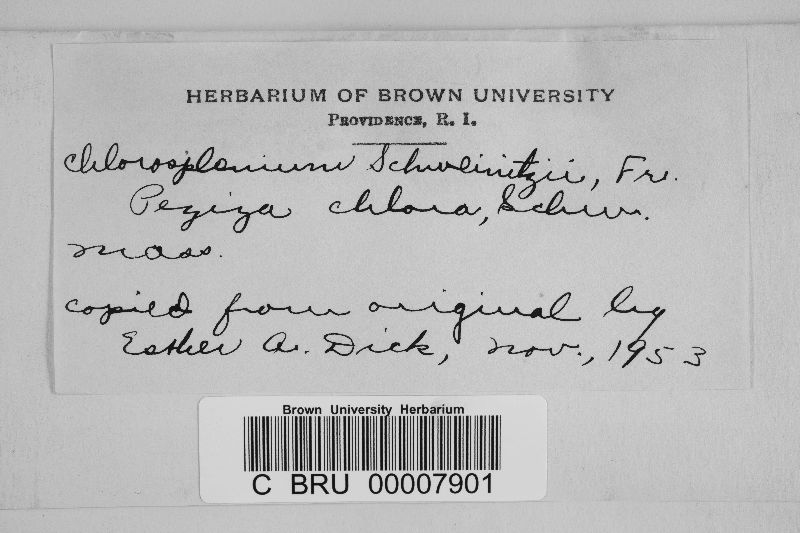 HERBARIUM OF BROWN UNIVERSITY
PROVIDENCE, R. I.
Chlorosplenium Schweinitzii, Fr.
Peziza chlora, Schw.
Mass.
copied from original by
Esther A. Dick, Nov., 1953
Brown University Herbarium
C BRU 00007901